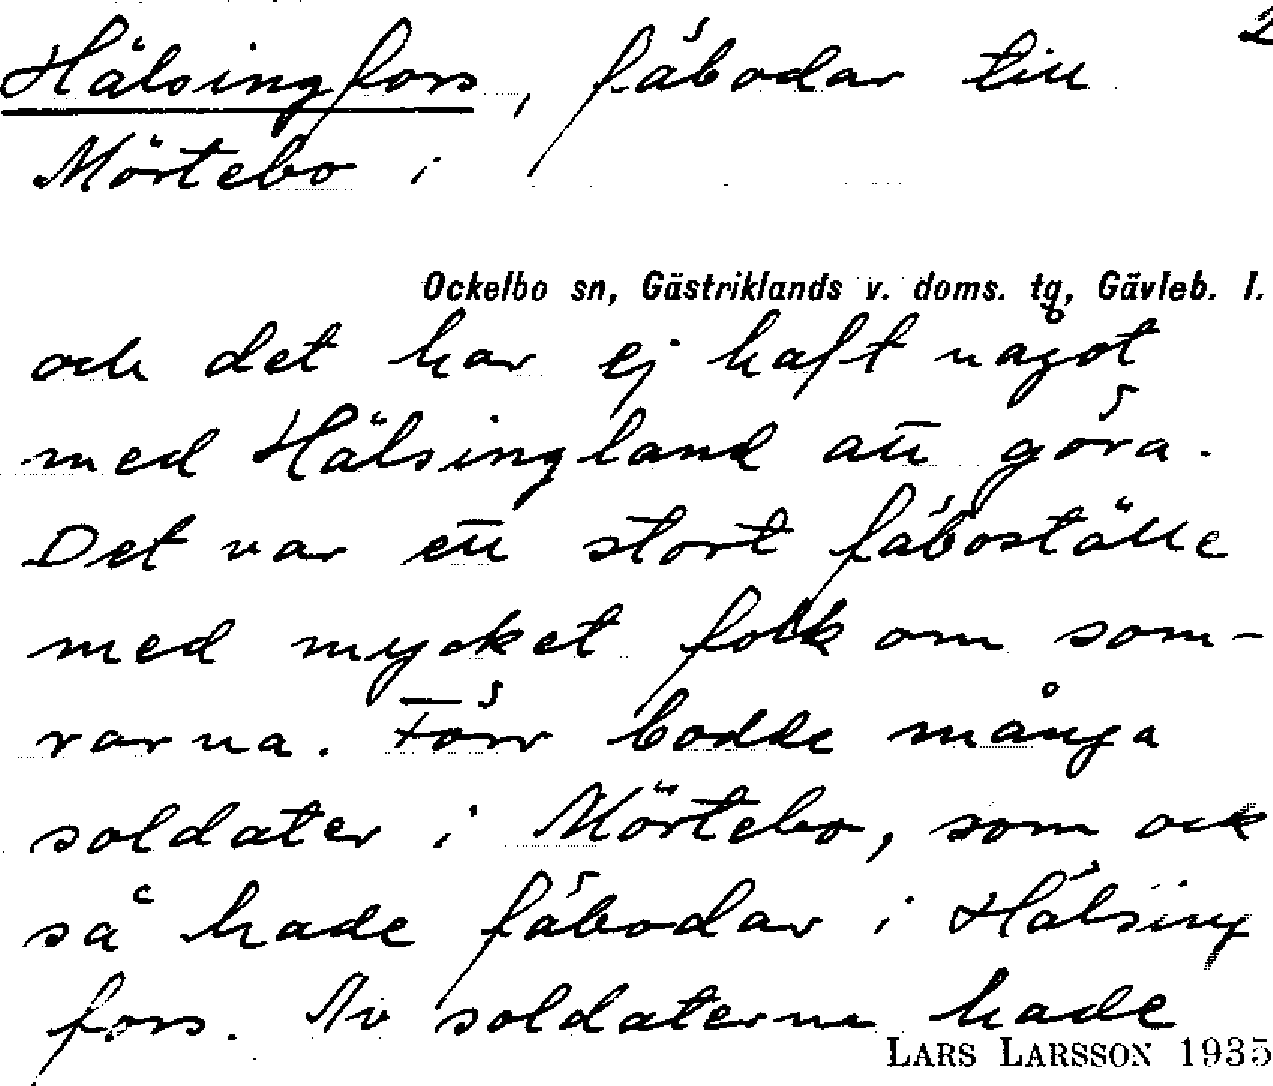 2
Hälsingfors, fäbodar till
Mörtebo i
Ockelbo sn, Gästriklands v. doms. tg, Gävleb. l.
och det har ej haft något
med Hälsingland att göra.
Det var ett stort fäboställe
med mycket folk om som-
rarna. Förr bodde många
soldater i Mörtebo, som ock
så hade fäbodar i Hälsing
fors. Av soldaterna hade
LARS LARSSON 1935